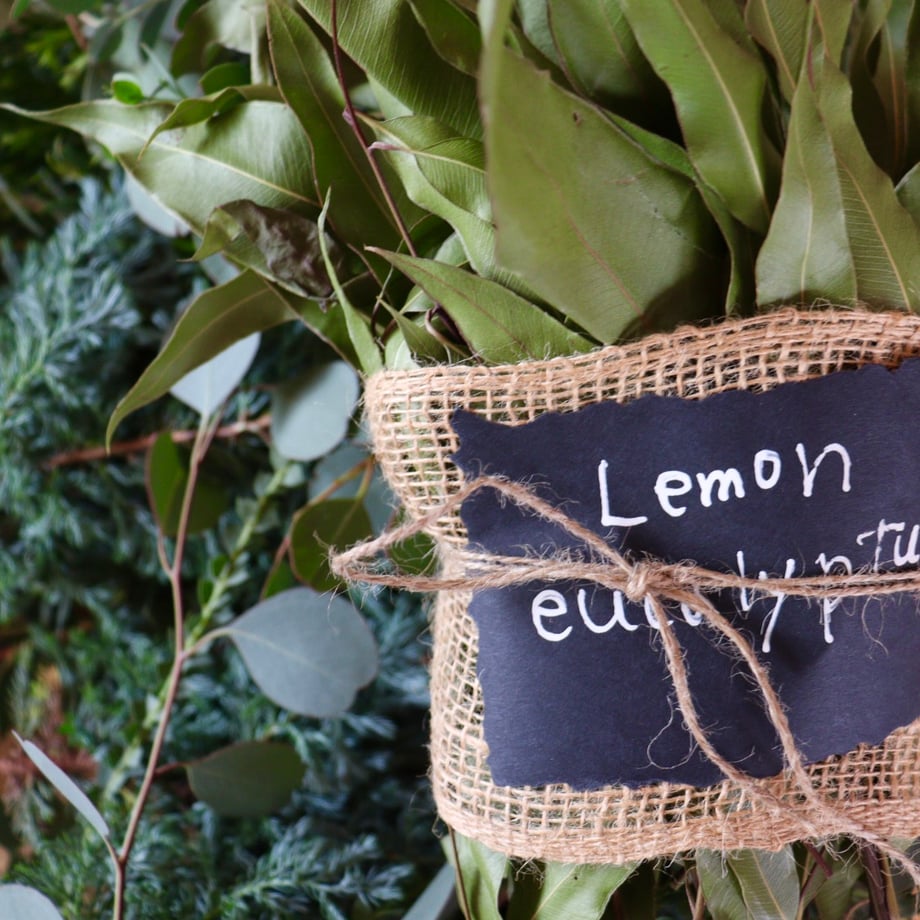 Lemon
eucalyptu